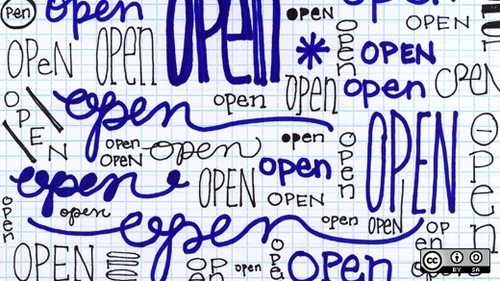 Pen
open
open
OPEN
open
OPEN
OPeN
open
open
OPEN
open
open
open
OPEN
OPEN
open
open
open
open
OPEN
open
open
open
OPEN
open
OPEN
open
OPEN
OPEN
open
open
open
open
OPEN
open
OPEN
open
open
open
open
cc BY SA